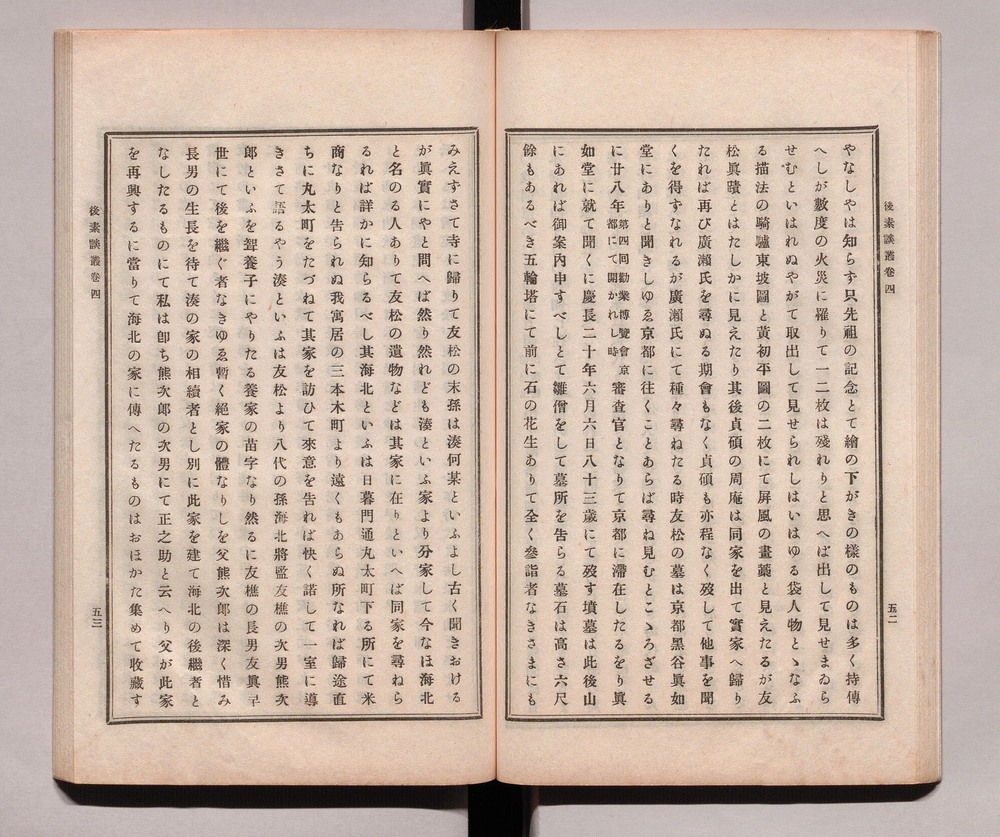 後素談叢卷四
五二
やなしやは知らず只先祖の記念とて繪の下がきの樣のものは多く持傳
へしが數度の火災に罹りて一二枚は殘れりと思へば出して見せまゐら
せむといはれぬやがて取出して見せられしはいはゆる袋人物とゝなふ
る描法の騎驢東坡圖と黃初平圖の二枚にて屏風の畫藁と見えたるが友
松眞蹟とはたしかに見えたり其後貞碩の周庵は同家を出て實家へ歸り
たれば再び廣瀨氏を尋ぬる期會もなく貞碩も亦程なく歿して他事を聞
くを得ずなれるが廣瀨氏にて種々尋ねたる時友松の墓は京都黑谷眞如
堂にありと聞きしゆゑ京都に往くことあらば尋ね見むとこゝろざせる
に廿八年第四回勸業博覽會京都にて開かれし時審査官となりて京都に滯在したるをり眞
如堂に就て聞くに慶長二十年六月六日八十三歲にて歿す墳墓は此後山
にあれば御案內申すべしとて雛僧をして墓所を告らる墓石は高さ六尺
餘もあるべき五輪塔にて前に石の花生ありて全く參詣者なきさまにも
みえずさて寺に歸りて友松の末孫は湊何某といふよし古く聞きおける
が眞實にやと問へば然り然れども湊といふ家より分家して今なほ海北
と名のる人ありて友松の遺物などは其家に在りといへば同家を尋ねら
るれば詳かに知らるべし其海北といふは日暮門通丸太町下る所にて米
商なりと告られぬ我寓居の三本木町より遠くもあらぬ所なれば歸途直
ちに丸太町をたづねて其家を訪ひて來意を告れば快く諾して一室に導
きさて語るやう湊といふは友松より八代の孫海北將監友樵の次男熊次
郎といふを聟養子にやりたる養家の苗字なり然るに友樵の長男友眞早
世にて後を繼ぐ者なきゆゑ暫く絕家の體なりしを父熊次郎は深く惜み
長男の生長を待て湊の家の相續者とし別に此家を建て海北の後繼者と
なしたるものにて私は卽ち熊次郎の次男にて正之助と云へり父が此家
を再興するに當りて海北の家に傳へたるものはおほかた集めて收藏す
後素談叢卷四
五三